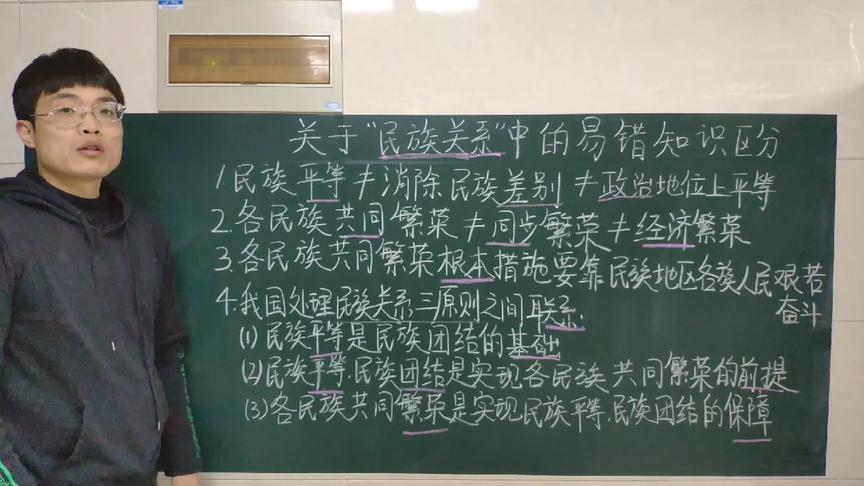 关于"民族关系"中的易错知识区分
1.民族平等≠消除民族差别≠政治地位上平等
2.各民族共同繁荣≠同步繁荣≠经济繁荣
3.各民族共同繁荣根本措施要靠民族地区各族人民艰苦
奋斗
4.我国处理民族关系三原则之间联系:
(1)民族平等是民族团结的基础
(2)民族平等、民族团结是实现各民族共同繁荣的前提
(3)各民族共同繁荣是实现民族平等、民族团结的保障